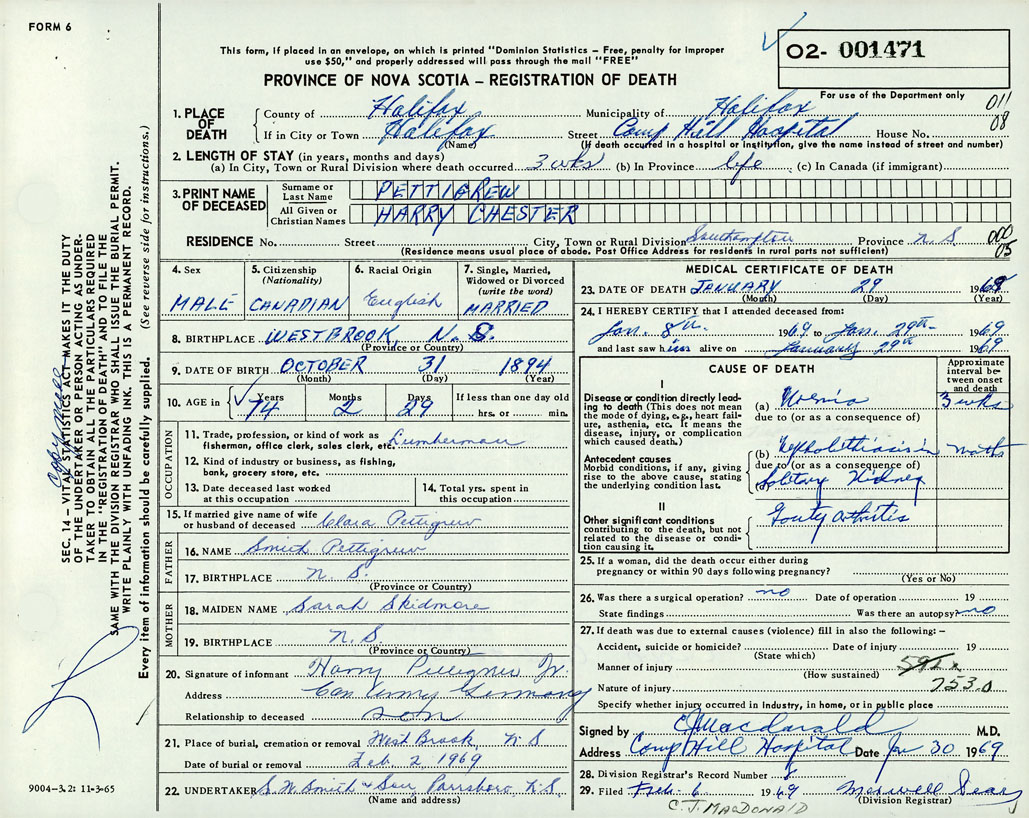 FORM 6
This form, if placed in an envelope, on which is printed "Dominion Statistics – Free, penalty for improper
use $50," and properly addressed will pass through the mail "FREE"
PROVINCE OF NOVA SCOTIA – REGISTRATION OF DEATH
02- 001471
For use of the Department only
011
08
1. PLACE OF DEATH
County of Halifax Municipality of Halifax
If in City or Town Halifax Street Camp Hill Hospital House No.
(Name) (If death occurred in a hospital or institution, give the name instead of street and number)
2. LENGTH OF STAY (in years, months and days)
(a) In City, Town or Rural Division where death occurred 3 wks (b) In Province life (c) In Canada (if immigrant)
3. PRINT NAME OF DECEASED
Surname or Last Name PETTIGREW
All Given or Christian Names HARRY CHESTER
RESIDENCE No. Street City, Town or Rural Division Southampton Province N.S. 000
05
(Residence means usual place of abode. Post Office Address for residents in rural parts not sufficient)
4. Sex MALE
5. Citizenship (Nationality) CANADIAN
6. Racial Origin English
7. Single, Married, Widowed or Divorced (write the word) MARRIED
8. BIRTHPLACE WESTBROOK, N.S.
(Province or Country)
9. DATE OF BIRTH OCTOBER 31 1894
(Month) (Day) (Year)
10. AGE in Years 74 Months 2 Days 29 If less than one day old
hrs. or min.
OCCUPATION
11. Trade, profession, or kind of work as fisherman, office clerk, sales clerk, etc. Lumberman
12. Kind of industry or business, as fishing, bank, grocery store, etc.
13. Date deceased last worked at this occupation
14. Total yrs. spent in this occupation
15. If married give name of wife or husband of deceased Clara Pettigrew
FATHER
16. NAME Smith Pettigrew
17. BIRTHPLACE N.S.
(Province or Country)
MOTHER
18. MAIDEN NAME Sarah Skidmore
19. BIRTHPLACE N.S.
(Province or Country)
20. Signature of informant Harry Pettigrew Jr.
Address Can Army Germany
Relationship to deceased son
21. Place of burial, cremation or removal West Brook, N S
Date of burial or removal Feb. 2, 1969
22. UNDERTAKER S.W. Smith & Son Parrsboro N.S.
(Name and address)
MEDICAL CERTIFICATE OF DEATH
23. DATE OF DEATH JANUARY 29 1969
(Month) (Day) (Year)
24. I HEREBY CERTIFY that I attended deceased from:
Jan. 8th 1969 to Jan. 29th 1969
and last saw him alive on January 29th 1969
CAUSE OF DEATH
Approximate interval between onset and death
I
Disease or condition directly leading to death (This does not mean the mode of dying, e.g., heart failure, asthenia, etc. It means the disease, injury, or complication which caused death.)
(a) Uremia 3 wks
due to (or as a consequence of)
Antecedent causes
Morbid conditions, if any, giving rise to the above cause, stating the underlying condition last.
(b) Nephrolithiasis in
due to (or as a consequence of)
(c) Solitary Kidney
II
Other significant conditions contributing to the death, but not related to the disease or condition causing it.
Gouty arthritis
25. If a woman, did the death occur either during
pregnancy or within 90 days following pregnancy?
(Yes or No)
26. Was there a surgical operation? no Date of operation 19
State findings Was there an autopsy? no
27. If death was due to external causes (violence) fill in also the following: –
Accident, suicide or homicide? Date of injury 19
(State which)
Manner of injury
(How sustained)
Nature of injury 753.0
Specify whether injury occurred in industry, in home, or in public place
Signed by C J Macdonald M.D.
Address Camp Hill Hospital Date Jan 30 1969
28. Division Registrar's Record Number
29. Filed Feb. 6 1969 Maxwell
(Division Registrar)
C. J. MACDONALD
9004-3.2: 11-3-65
SEC. 14 – VITAL STATISTICS ACT MAKES IT THE DUTY
OF THE UNDERTAKER OR PERSON ACTING AS UNDER-
TAKER TO OBTAIN ALL THE PARTICULARS REQUIRED
IN THE "REGISTRATION OF DEATH" AND TO FILE THE
SAME WITH THE DIVISION REGISTRAR WHO SHALL ISSUE THE BURIAL PERMIT.
WRITE PLAINLY WITH UNFADING INK. THIS IS A PERMANENT RECORD.
Every item of information should be carefully supplied. (See reverse side for instructions.)